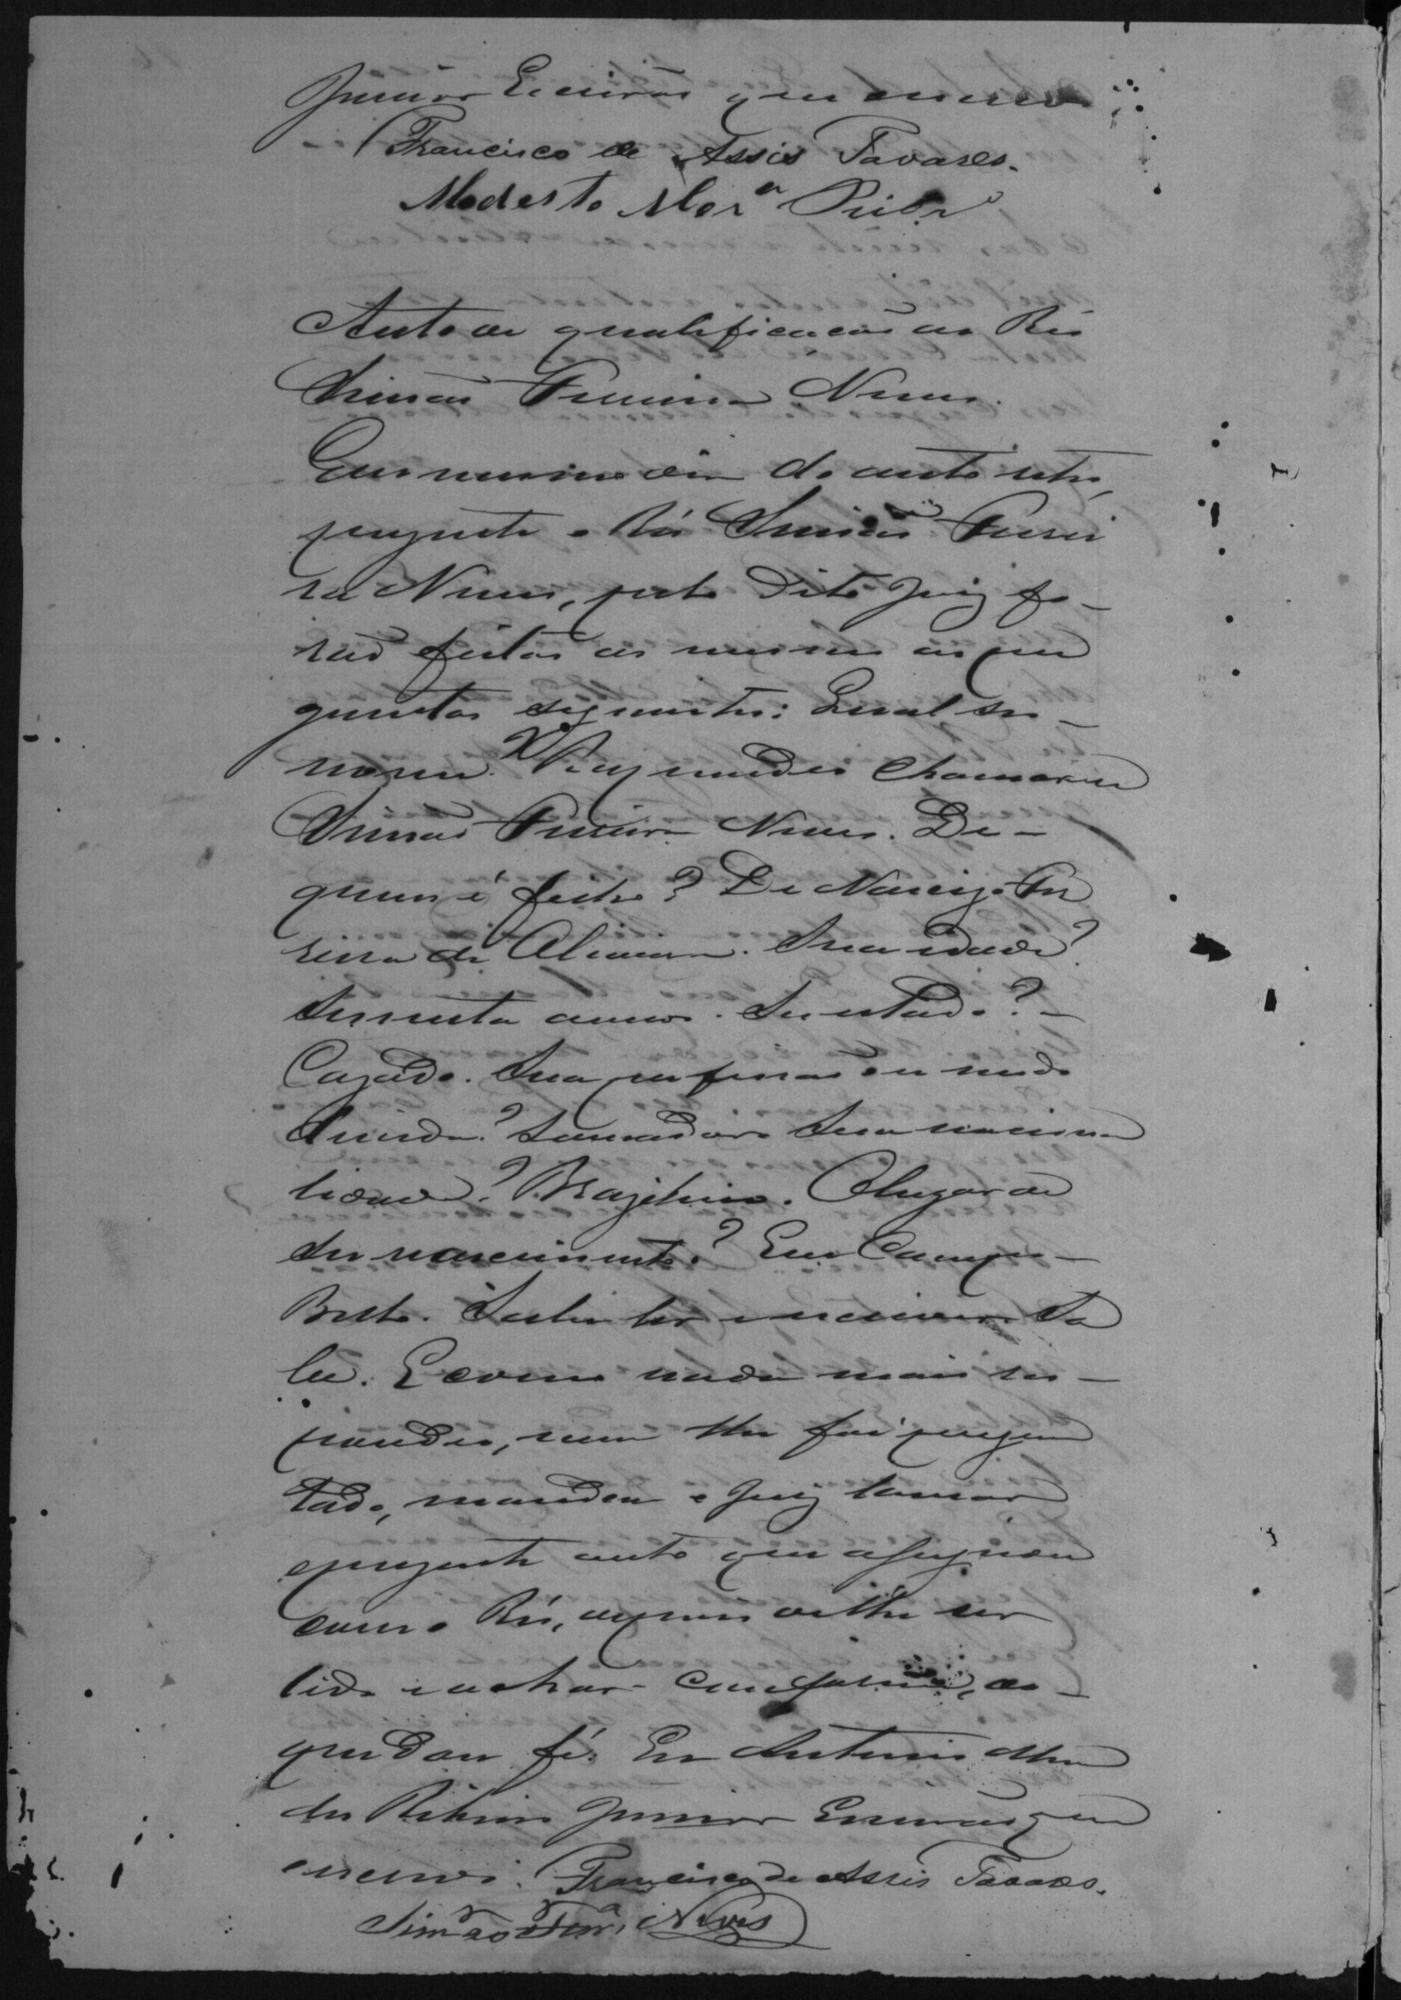 Junior Escrivão que escrevi
Francisco de Assis Tavares.
Modesto Mor.ª
Auto de qualificação do Reo
Simão Ferreira Neves.
Em o mesmo dia do auto retro,
presente o Réo Simão Ferrei
ra Neves, pelo dito Juiz fo-
rão feitas ao mesmo as per
guntas seguintes: Qual seu
nome? Respondeu chamar-se
Simão Ferreira Neves. De
quem é filho? De Narcizo Fer
reira de Oliveira. Sua idade?
Secenta annos. Seu estado?
Cazado. Sua profissão ou modo
de vida? Lavrador. Sua naciona
lidade? Brazileiro. O lugar de
seu nascimento? Em Campo
Bello. Sabe ler e escrever? Sa
be. E como nada mais res-
pondeu, nem lhe foi pergun
tado, mandou o Juiz lavrar
o presente auto que assignou
com o Réo, depois de lhe ser
lido e achar conforme, do
que dou fé. Eu Antonio
Ribeiro Junior Escrivão que
escrevi. Francisco de Assis Tavares.
Simão Ferr.ª Neves